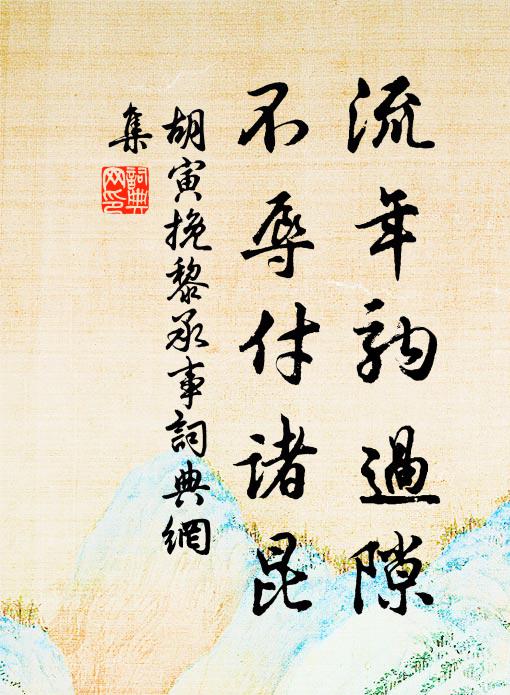 流年駒過隙
不辱付諸昆
胡寅挽黎承事詞典網
集
詞典
网印